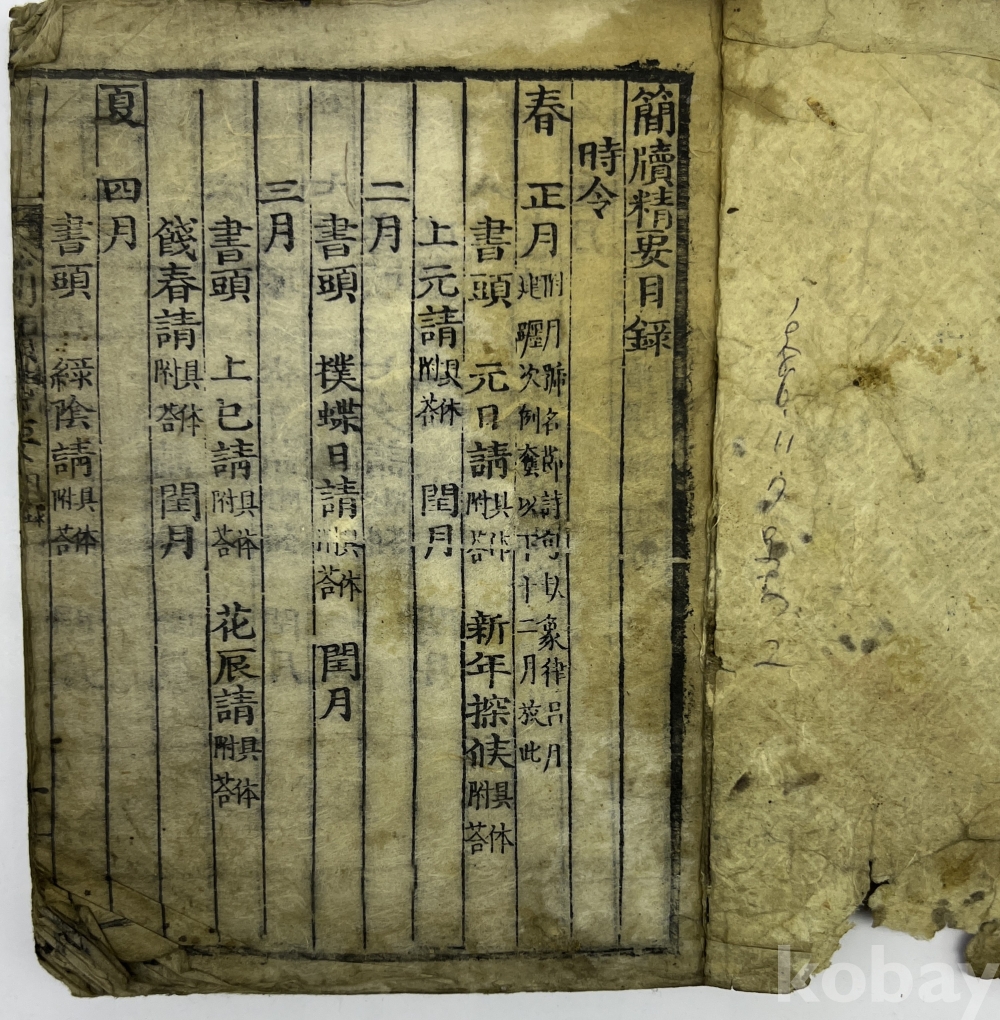 簡牘精要目錄
時令
春 正月 附月號名節詩句以象律呂月建躔次例套以下十二月放此
書頭 元日請 具体附荅 新年探候 具体附荅
上元請 具体附荅 閏月
二月
書頭 撲蝶日請 具体附荅 閏月
三月
書頭 上巳請 具体附荅 花辰請 具体附荅
餞春請 具体附荅 閏月
夏 四月
書頭 綠陰請 具体附荅
kobay